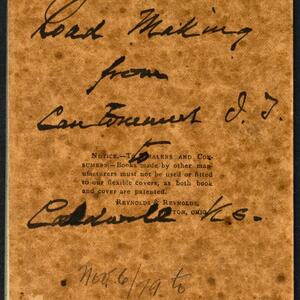 Road Making
from
Cantonment I. T.
to
NOTICE.—To Dealers and Con-
sumers.—Books made by other man-
ufacturers must not be used or fitted
to our flexible covers, as both book
and cover are patented.
Reynolds & Reynolds,
Dayton, Ohio.
Caldwell Ks.
Nov. 6/79 to